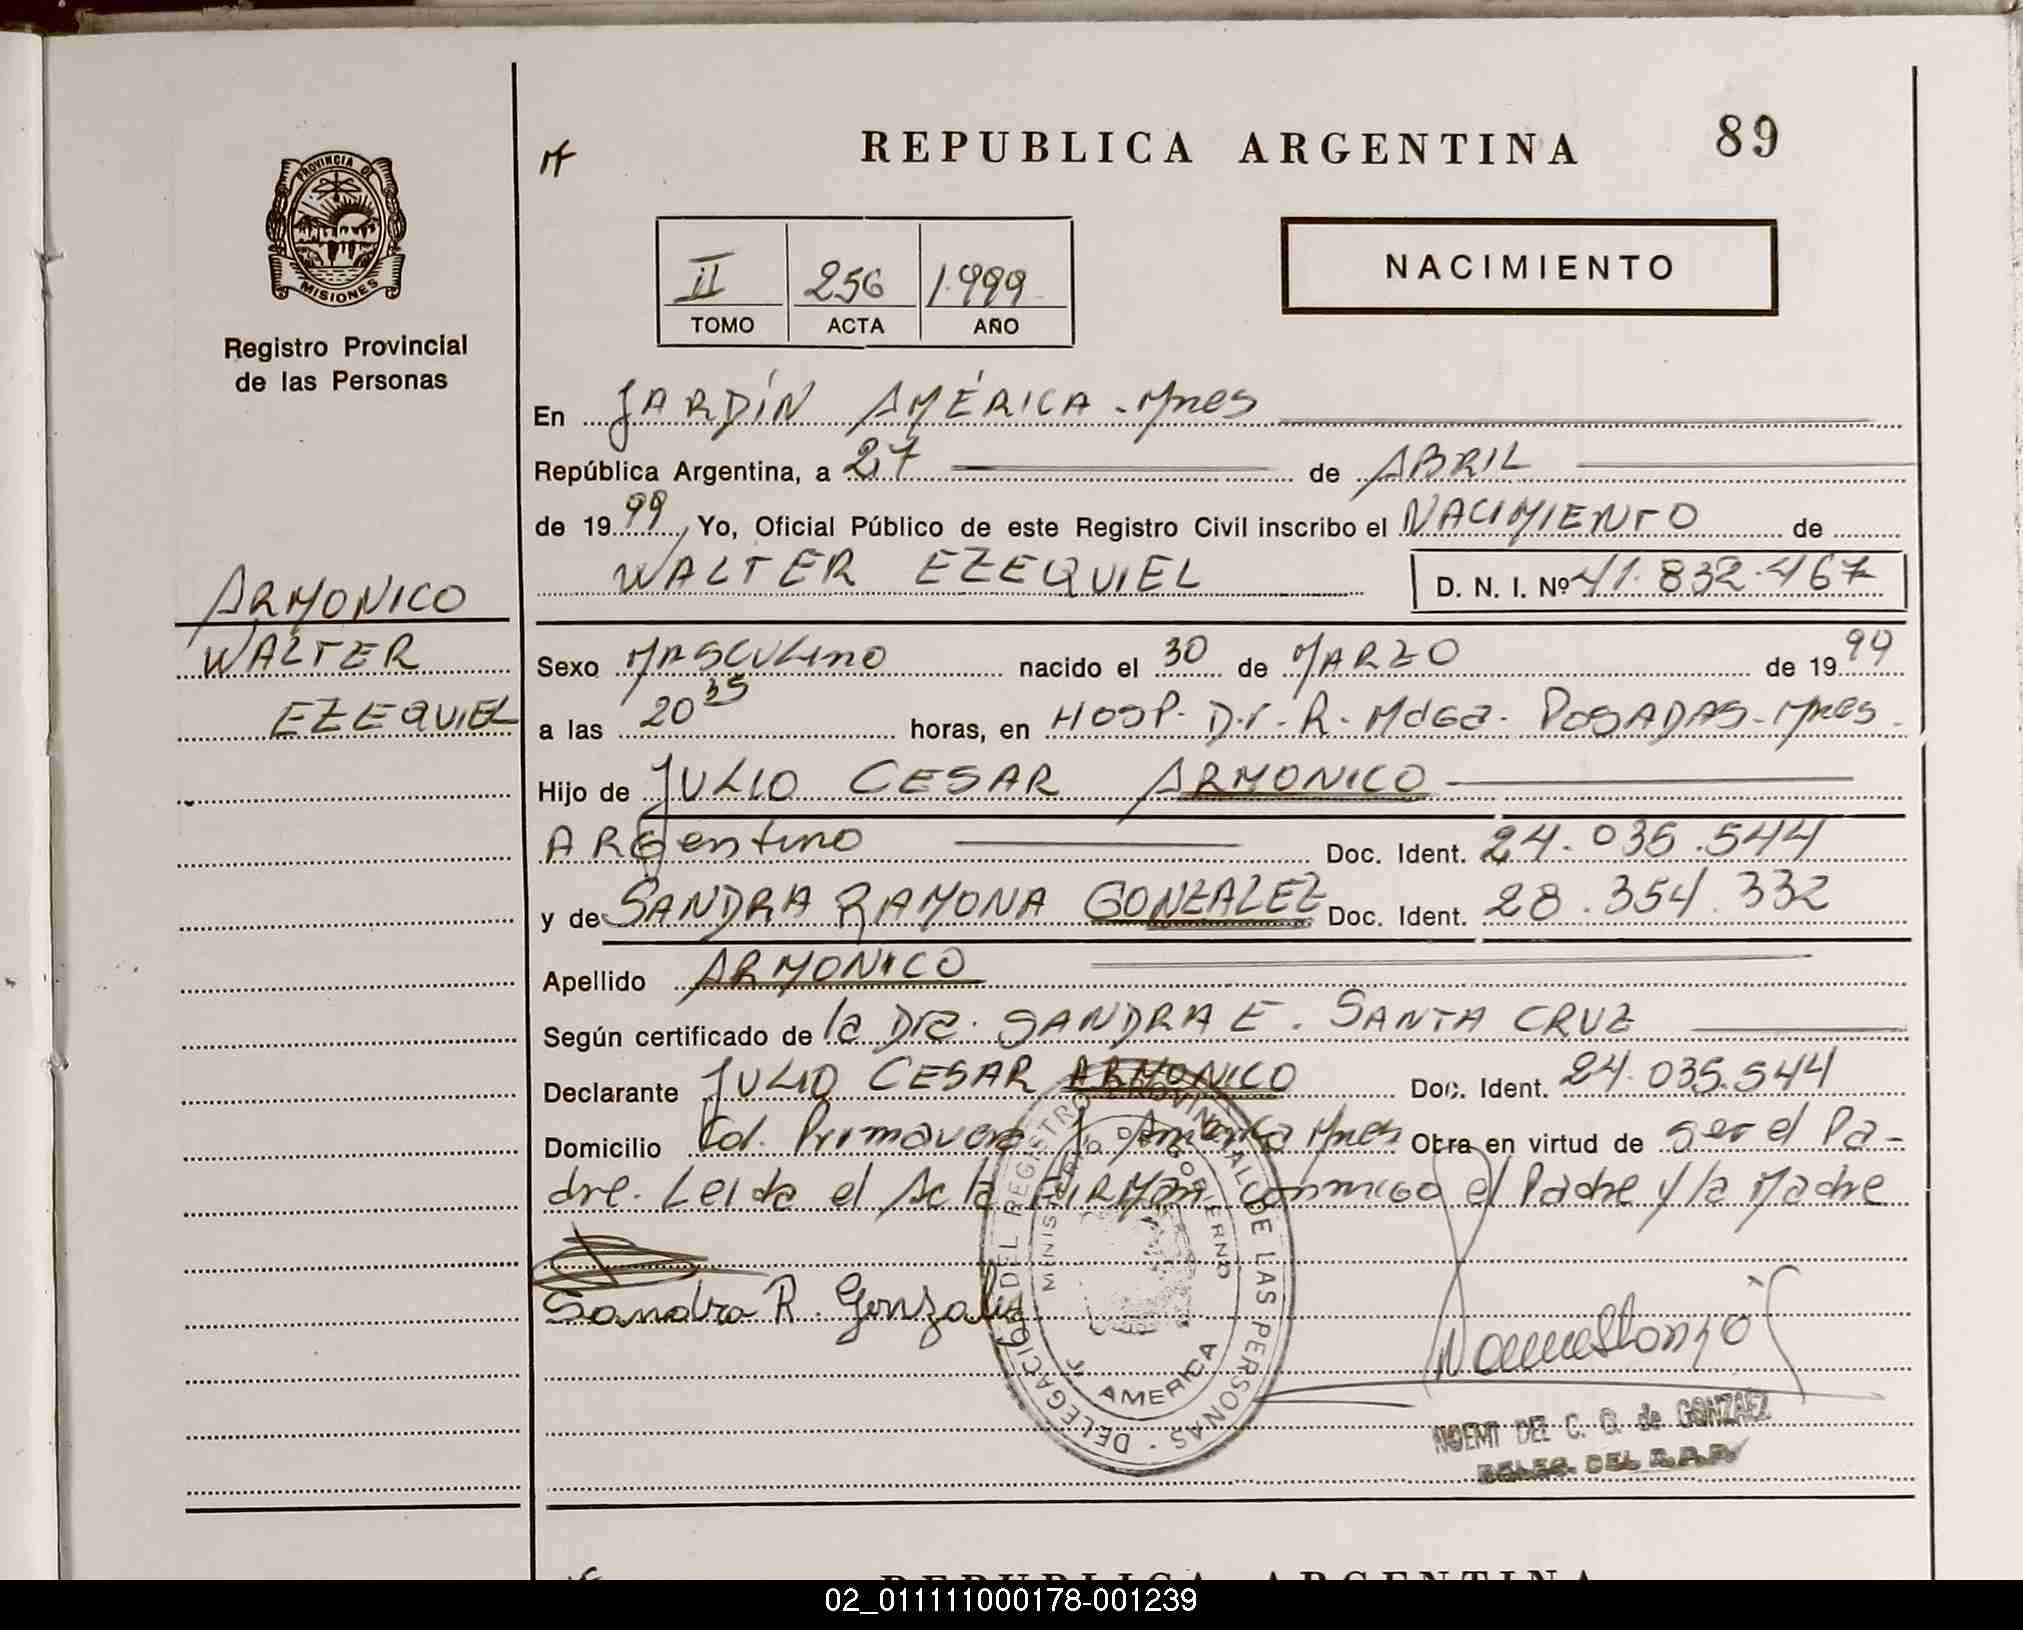 REPUBLICA ARGENTINA 89
PROVINCIA DE
MISIONES
Registro Provincial
de las Personas
II 256 1.999
TOMO ACTA AÑO
NACIMIENTO
En JARDÍN AMÉRICA - Mnes
República Argentina, a 27 de ABRIL
de 1999, Yo, Oficial Público de este Registro Civil inscribo el NACIMIENTO de
WALTER EZEQUIEL D. N. I. Nº 41.832.467
ARMONICO
WALTER
EZEQUIEL
Sexo MASCULINO nacido el 30 de MARZO de 1999
a las 20 35 horas, en HOSP. Dr. R. Mdga. POSADAS - Mnes.
Hijo de JULIO CESAR ARMONICO
ARGentino Doc. Ident. 24.035.544
y de SANDRA RAMONA GONZALEZ Doc. Ident. 28.354.332
Apellido ARMONICO
Según certificado de la Dra. SANDRA E. SANTA CRUZ
Declarante JULIO CESAR ARMONICO Doc. Ident. 24.035.544
Domicilio Cd. Primavera J. America Mnes Obra en virtud de ser el Pa-
dre. Leida el Acta FIRMan conmigo el Padre y la Madre
Sandra R. Gonzalez
DELEGACION DEL REGISTRO PROVINCIAL DE LAS PERSONAS
MINISTERIO DE GOBIERNO
J. AMERICA
NOEMI DEL C. O. de GONZALEZ
DELEG. DEL R.P.P.
REPUBLICA ARGENTINA
02_01111100178-001239